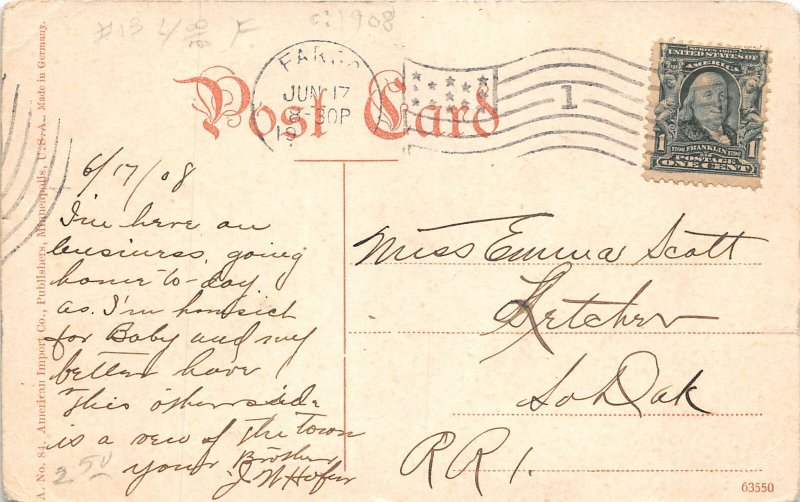 #13
c: 1908
FARGO
JUN 17
8-30P
19
1
Post Card
SERIES 1902
UNITED STATES OF
AMERICA
1706 FRANKLIN 1790
1 POSTAGE 1
ONE CENT
A. No. 84. American Import Co., Publishers, Minneapolis, U.S.A., Made in Germany.
6/17/08
I'm here on
business, going
home to-day.
as. I'm homsick
for Baby and my
better have
This other side
is a view of the town
your Brother
J W Hofer
2 50
Miss Emma Scott
Ketcher
So Dak
RR 1.
63550